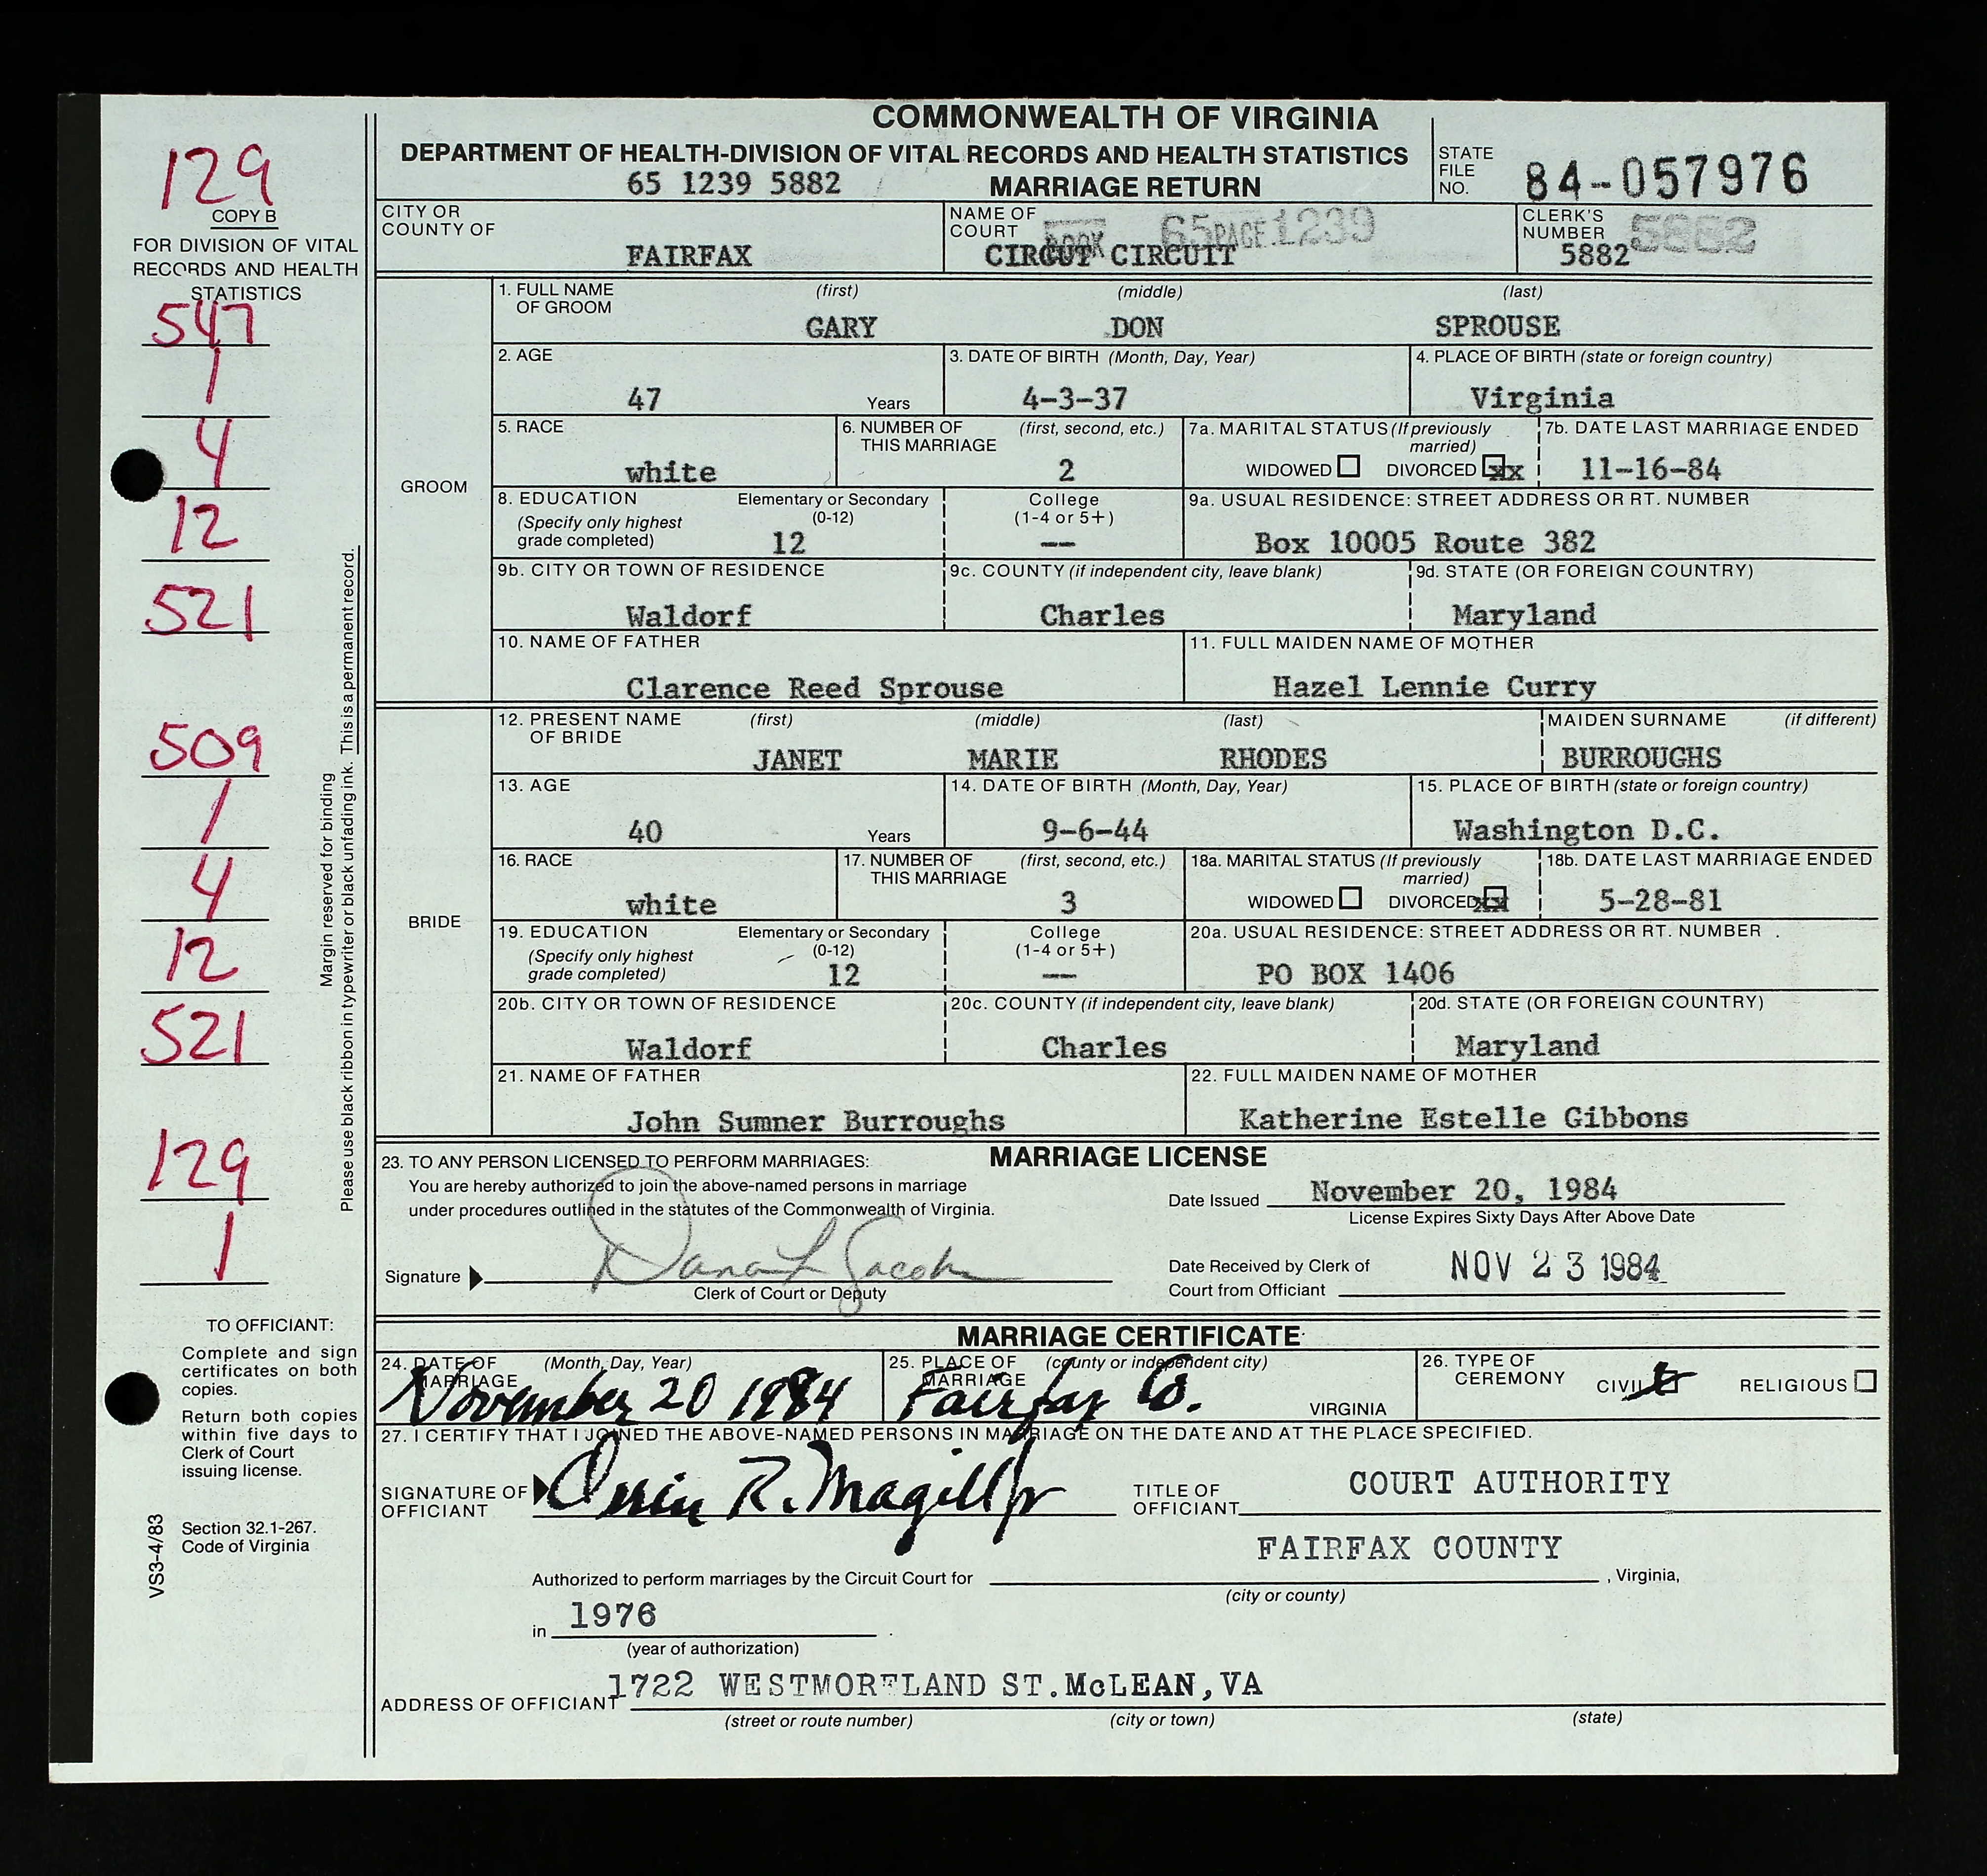 COMMONWEALTH OF VIRGINIA
DEPARTMENT OF HEALTH-DIVISION OF VITAL RECORDS AND HEALTH STATISTICS
65 1239 5882 MARRIAGE RETURN
STATE FILE NO. 84-057976
129
COPY B
FOR DIVISION OF VITAL
RECORDS AND HEALTH
STATISTICS
547
1
4
12
521
509
1
4
12
521
129
1
Margin reserved for binding
Please use black ribbon in typewriter or black unfading ink. This is a permanent record.
TO OFFICIANT:
Complete and sign
certificates on both
copies.
Return both copies
within five days to
Clerk of Court
issuing license.
Section 32.1-267.
Code of Virginia
VS3-4/83
CITY OR COUNTY OF FAIRFAX
NAME OF COURT CIRCUT CIRCUIT
BOOK 65 PAGE 1239
CLERK'S NUMBER 5882 5882
GROOM
1. FULL NAME OF GROOM (first) (middle) (last)
GARY DON SPROUSE
2. AGE 47 Years
3. DATE OF BIRTH (Month, Day, Year) 4-3-37
4. PLACE OF BIRTH (state or foreign country) Virginia
5. RACE white
6. NUMBER OF THIS MARRIAGE (first, second, etc.) 2
7a. MARITAL STATUS (If previously married)
WIDOWED DIVORCED xx
7b. DATE LAST MARRIAGE ENDED 11-16-84
8. EDUCATION (Specify only highest grade completed)
Elementary or Secondary (0-12) 12
College (1-4 or 5+) --
9a. USUAL RESIDENCE: STREET ADDRESS OR RT. NUMBER
Box 10005 Route 382
9b. CITY OR TOWN OF RESIDENCE Waldorf
9c. COUNTY (if independent city, leave blank) Charles
9d. STATE (OR FOREIGN COUNTRY) Maryland
10. NAME OF FATHER Clarence Reed Sprouse
11. FULL MAIDEN NAME OF MOTHER Hazel Lennie Curry
BRIDE
12. PRESENT NAME OF BRIDE (first) (middle) (last)
JANET MARIE RHODES
MAIDEN SURNAME (if different) BURROUGHS
13. AGE 40 Years
14. DATE OF BIRTH (Month, Day, Year) 9-6-44
15. PLACE OF BIRTH (state or foreign country) Washington D.C.
16. RACE white
17. NUMBER OF THIS MARRIAGE (first, second, etc.) 3
18a. MARITAL STATUS (If previously married)
WIDOWED DIVORCED xx
18b. DATE LAST MARRIAGE ENDED 5-28-81
19. EDUCATION (Specify only highest grade completed)
Elementary or Secondary (0-12) 12
College (1-4 or 5+) --
20a. USUAL RESIDENCE: STREET ADDRESS OR RT. NUMBER
PO BOX 1406
20b. CITY OR TOWN OF RESIDENCE Waldorf
20c. COUNTY (if independent city, leave blank) Charles
20d. STATE (OR FOREIGN COUNTRY) Maryland
21. NAME OF FATHER John Sumner Burroughs
22. FULL MAIDEN NAME OF MOTHER Katherine Estelle Gibbons
MARRIAGE LICENSE
23. TO ANY PERSON LICENSED TO PERFORM MARRIAGES:
You are hereby authorized to join the above-named persons in marriage
under procedures outlined in the statutes of the Commonwealth of Virginia.
Date Issued November 20, 1984
License Expires Sixty Days After Above Date
Signature Dana L Jacobs
Clerk of Court or Deputy
Date Received by Clerk of
Court from Officiant NOV 23 1984
MARRIAGE CERTIFICATE
24. DATE OF MARRIAGE (Month, Day, Year) November 20 1984
25. PLACE OF MARRIAGE (county or independent city) Fairfax Co. VIRGINIA
26. TYPE OF CEREMONY CIVIL RELIGIOUS
27. I CERTIFY THAT I JOINED THE ABOVE-NAMED PERSONS IN MARRIAGE ON THE DATE AND AT THE PLACE SPECIFIED.
SIGNATURE OF OFFICIANT Orrin R. Magill Jr
TITLE OF OFFICIANT COURT AUTHORITY
Authorized to perform marriages by the Circuit Court for FAIRFAX COUNTY, Virginia,
(city or county)
in 1976.
(year of authorization)
ADDRESS OF OFFICIANT 1722 WESTMORELAND ST. McLEAN, VA
(street or route number) (city or town) (state)